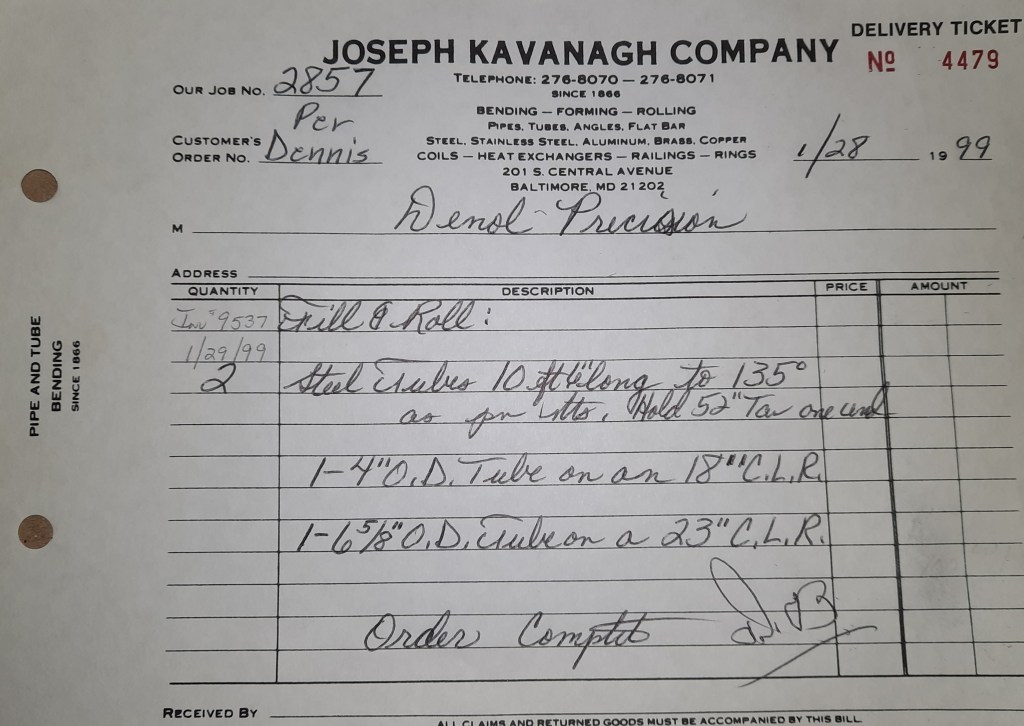 DELIVERY TICKET
JOSEPH KAVANAGH COMPANY
Nº 4479
OUR JOB NO. 2857
TELEPHONE: 276-8070 — 276-8071
SINCE 1866
BENDING — FORMING — ROLLING
PIPES, TUBES, ANGLES, FLAT BAR
CUSTOMER'S ORDER NO. Per Dennis
STEEL, STAINLESS STEEL, ALUMINUM, BRASS, COPPER
COILS — HEAT EXCHANGERS — RAILINGS — RINGS
1/28 19 99
201 S. CENTRAL AVENUE
BALTIMORE, MD 21202
M Denol Precision
ADDRESS
QUANTITY DESCRIPTION PRICE AMOUNT
Inv # 9537 & Roll:
1/29/99
2 Steel Tubes 10 ft 6" long to 135°
as Hold 52" Tan one end
1-4" O.D. Tube on an 18" C.L.R.
1-6 5/8" O.D. Tube on a 23" C.L.R.
Order
RECEIVED BY
ALL CLAIMS AND RETURNED GOODS MUST BE ACCOMPANIED BY THIS BILL
PIPE AND TUBE
BENDING
SINCE 1866